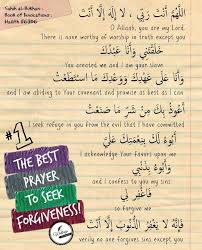 Sahih al-Bukhari :
Book of Invocations :
Hadith 6306
اللَّهُمَّ أَنْتَ رَبِّي ، لَا إِلَهَ إِلَّا أَنْتَ
O Allaah, you are my Lord.
There is none worthy of worship in truth except you
خَلَقْتَنِي وَأَنَا عَبْدُكَ
You created me and I am your slave
وَأَنَا عَلَى عَهْدِكَ وَوَعْدِكَ مَا اسْتَطَعْتُ
and I am abiding to your covenant and promise as best I can
أَعُوذُ بِكَ مِنْ شَرِّ مَا صَنَعْتُ
I seek refuge in you from the evil that I have committed
أَبُوءُ لَكَ بِنِعْمَتِكَ عَلَيَّ
I acknowledge Your favors upon me
وَأَبُوءُ بِذَنْبِي
and I confess to you my sins
so forgive me
فَإِنَّهُ لَا يَغْفِرُ الذُّنُوبَ إِلَّا أَنْتَ
verily no one forgives sins except you
#1
THE BEST
PRAYER
TO SEEK
FORGIVENESS!